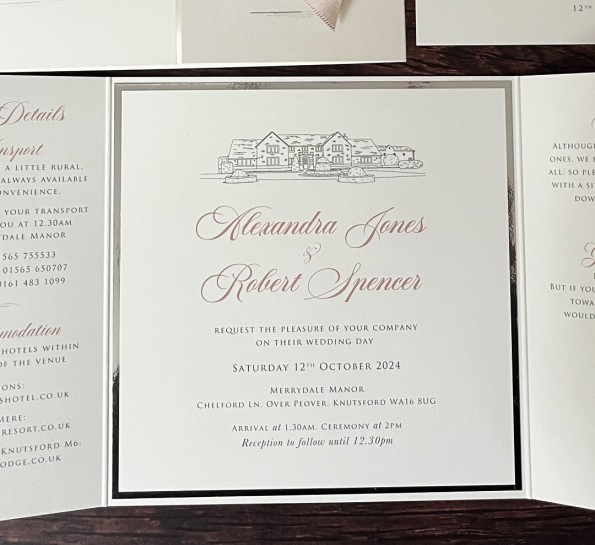 12TH
Details
nsport
A LITTLE RURAL,
ALWAYS AVAILABLE
NVENIENCE.
YOUR TRANSPORT
OU AT 12.30AM
RYDALE MANOR
565 755533
01565 650707
0161 483 1099
modation
HOTELS WITHIN
OF THE VENUE
ONS:
SHOTEL.CO.UK
MERE:
RESORT.CO.UK
KNUTSFORD M6:
ODGE.CO.UK
Alexandra Jones
&
Robert Spencer
REQUEST THE PLEASURE OF YOUR COMPANY
ON THEIR WEDDING DAY
SATURDAY 12TH OCTOBER 2024
MERRYDALE MANOR
CHELFORD LN, OVER PEOVER, KNUTSFORD WA16 8UG
ARRIVAL at 1.30AM, CEREMONY at 2PM
Reception to follow until 12.30pm
ALTHOUGH
ONES, WE
ALL. SO PLE
WITH A SIT
DOW
BUT IF YOU
TOWA
WOULD